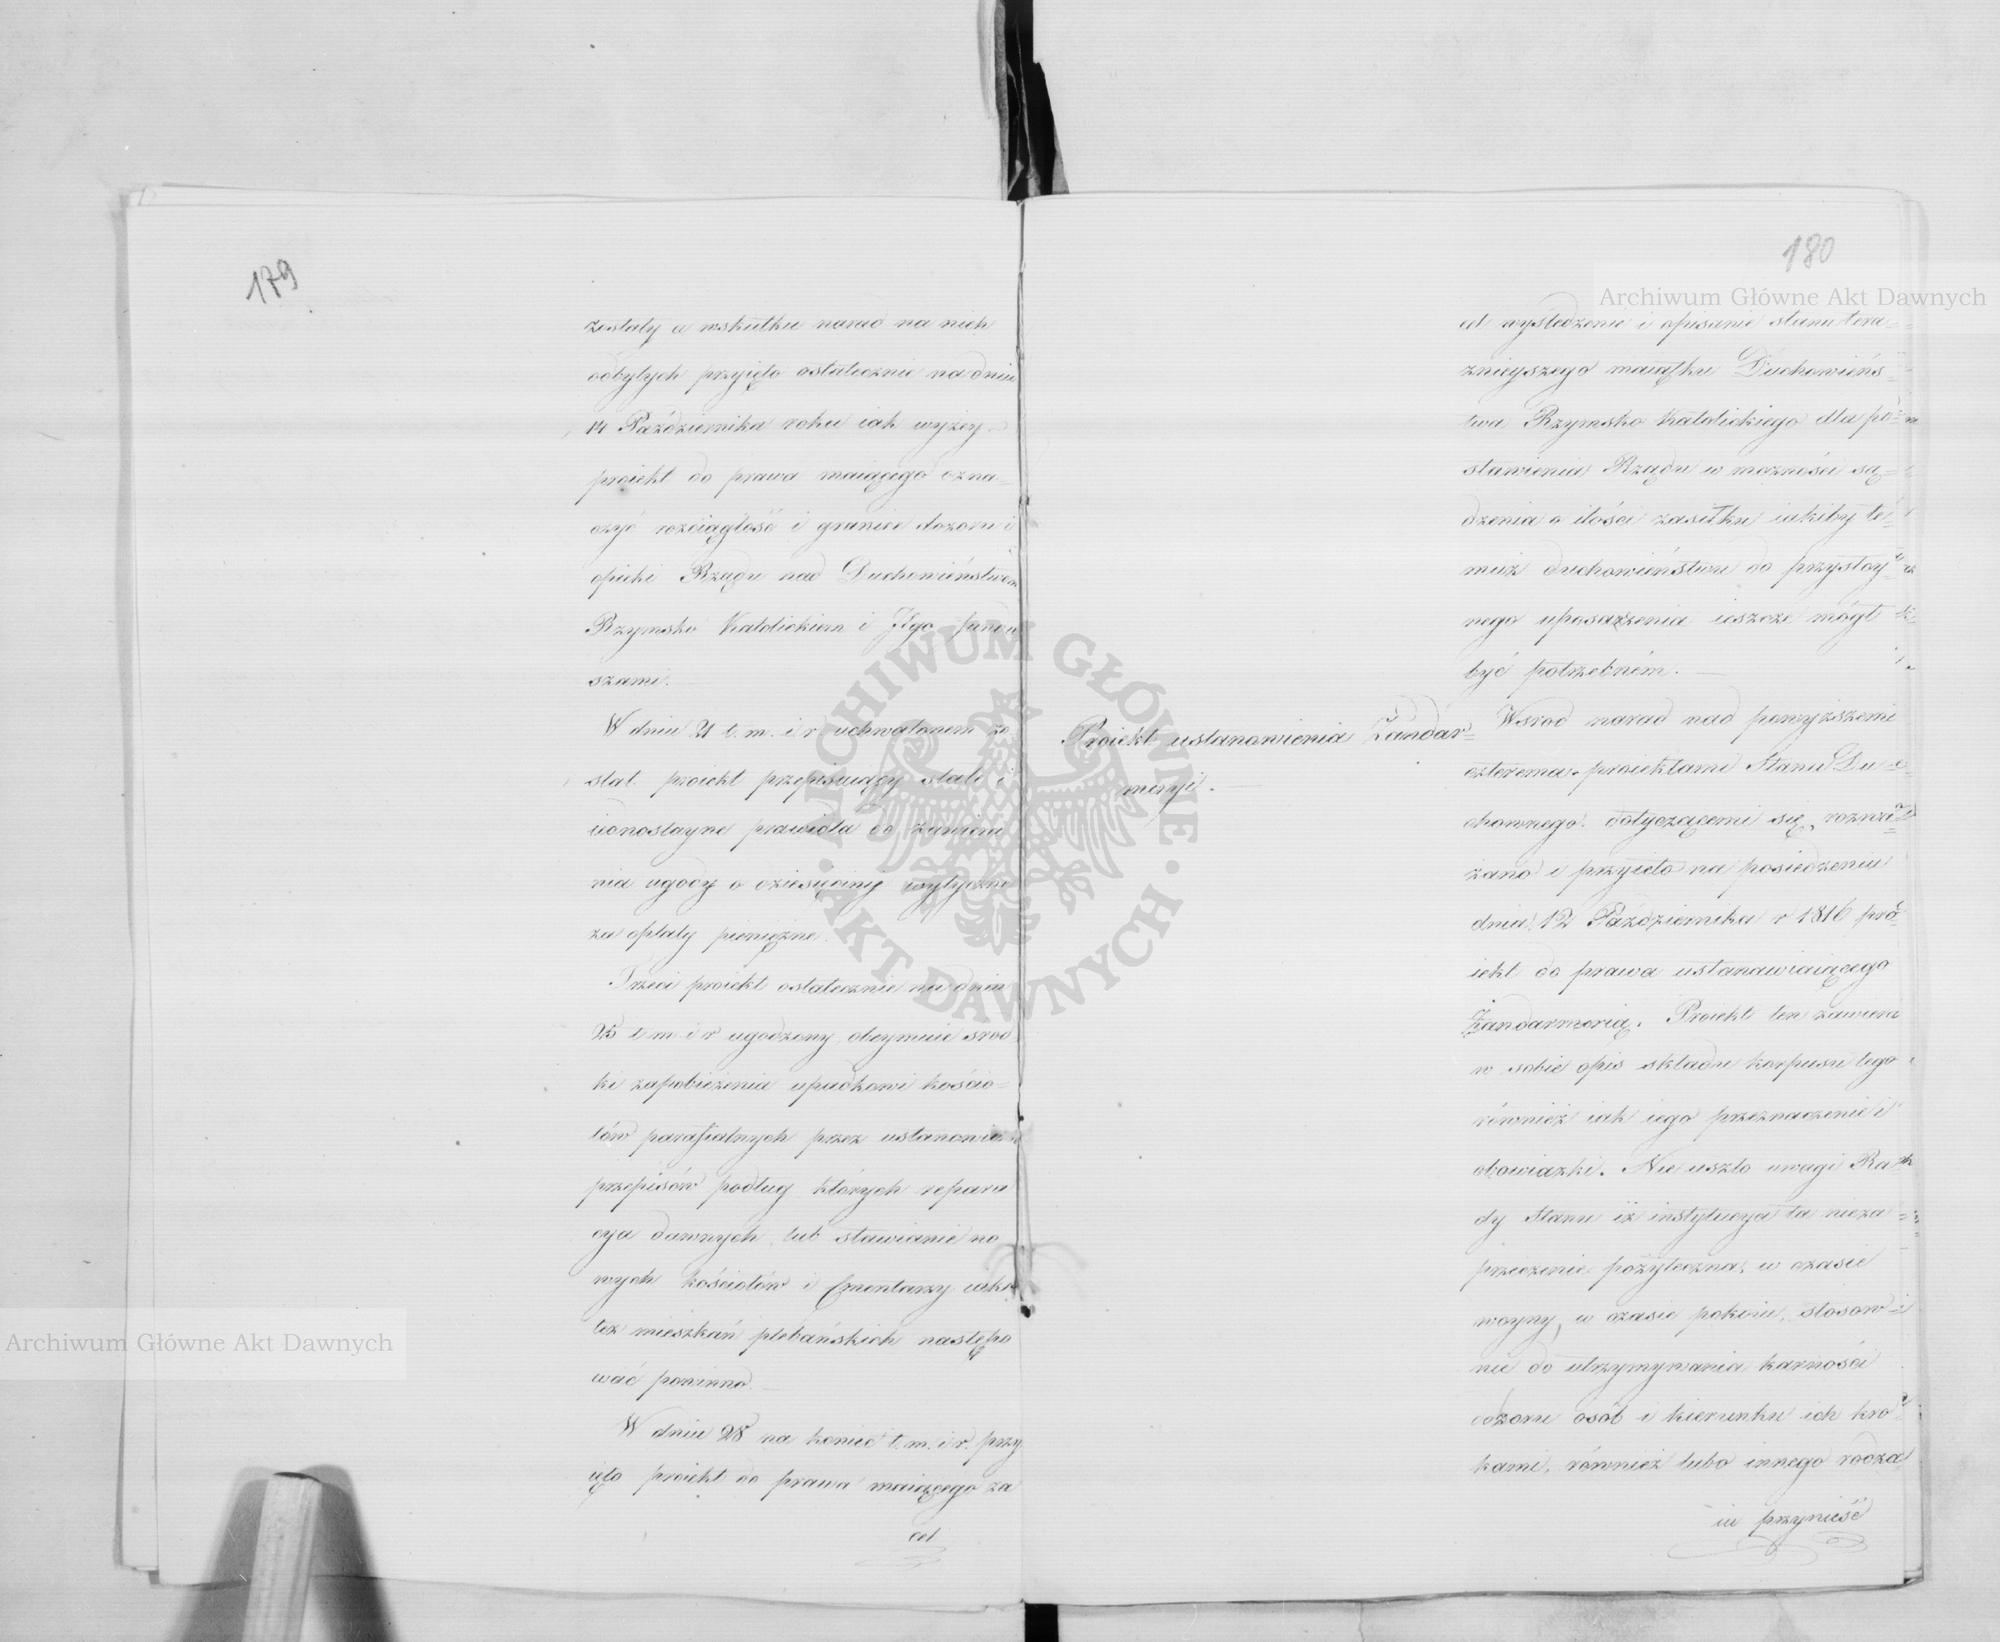 179
zostały a wskutku narad na nich
odbytych przyięto ostatecznie na dniu
14 Października roku iak wyżey
proiekt do prawa maiącego ozna=
czyć rozciągłość i granice dozoru i
opieki Rządu nad Duchowieństwem
Rzymsko Katolickiem i Jego fundu
szami.
W dniu 21 t. m. i r. uchwalonem zo
stał proiekt przepisuiący stałe i
iednostayne prawidła do zawiera
nia ugody o dziesięciny wytyczne
za opłaty pieniężne.
Trzeci proiekt ostatecznie na dniu
25 t. m. i r. ugodzony obeymuie srod
ki zapobieżenia upadkowi kościo=
łów parafialnych przez ustanowie
przepisów podług których repara
cya dawnych lub stawianie no
wych kościołów i Cmentarzy iako
też mieszkań plebańskich następo
wać powinno.
W dniu 28 na koniec t. m. i r. przy
ięto proiekt do prawa maiącego za
cel
180
cel wyśledzenie i opisanie stanu tera=
znieyszego maiątku Duchowieńs=
twa Rzymsko Katolickiego dla po=
stawienia Rządu w możności są=
dzenia o ilości zasiłku iakiby te=
muż duchowieństwu do przystoy=
nego uposażenia ieszcze mógł
być potrzebném.
Proiekt ustanowienia Żandar=
meryi.
Wsrod narad nad powyższemi
czterema proiektami Stanu Du=
chownego dotyczącemi się, rozwa=
żano i przyięto na posiedzeniu
dnia 12 Października r 1816 pro=
iekt do prawa ustanawiaiącego
Żandarmerią. Proiekt ten zawiera
w sobie opis składu korpusu tego
również iak iego przeznaczenie i
obowiązki. Nie uszło uwagi Ra
dy Stanu iż instytucya ta nieza
przeczenie pożyteczna, w czasie
woyny, w czasie pokoiu, stosow=
nie do utrzymywania karności
dozoru osób i kierunku ich kro=
kami, również lubo innego rodza
iu przynieść
Archiwum Główne Akt Dawnych
Archiwum Główne Akt Dawnych
ARCHIWUM GŁÓWNE
AKT DAWNYCH